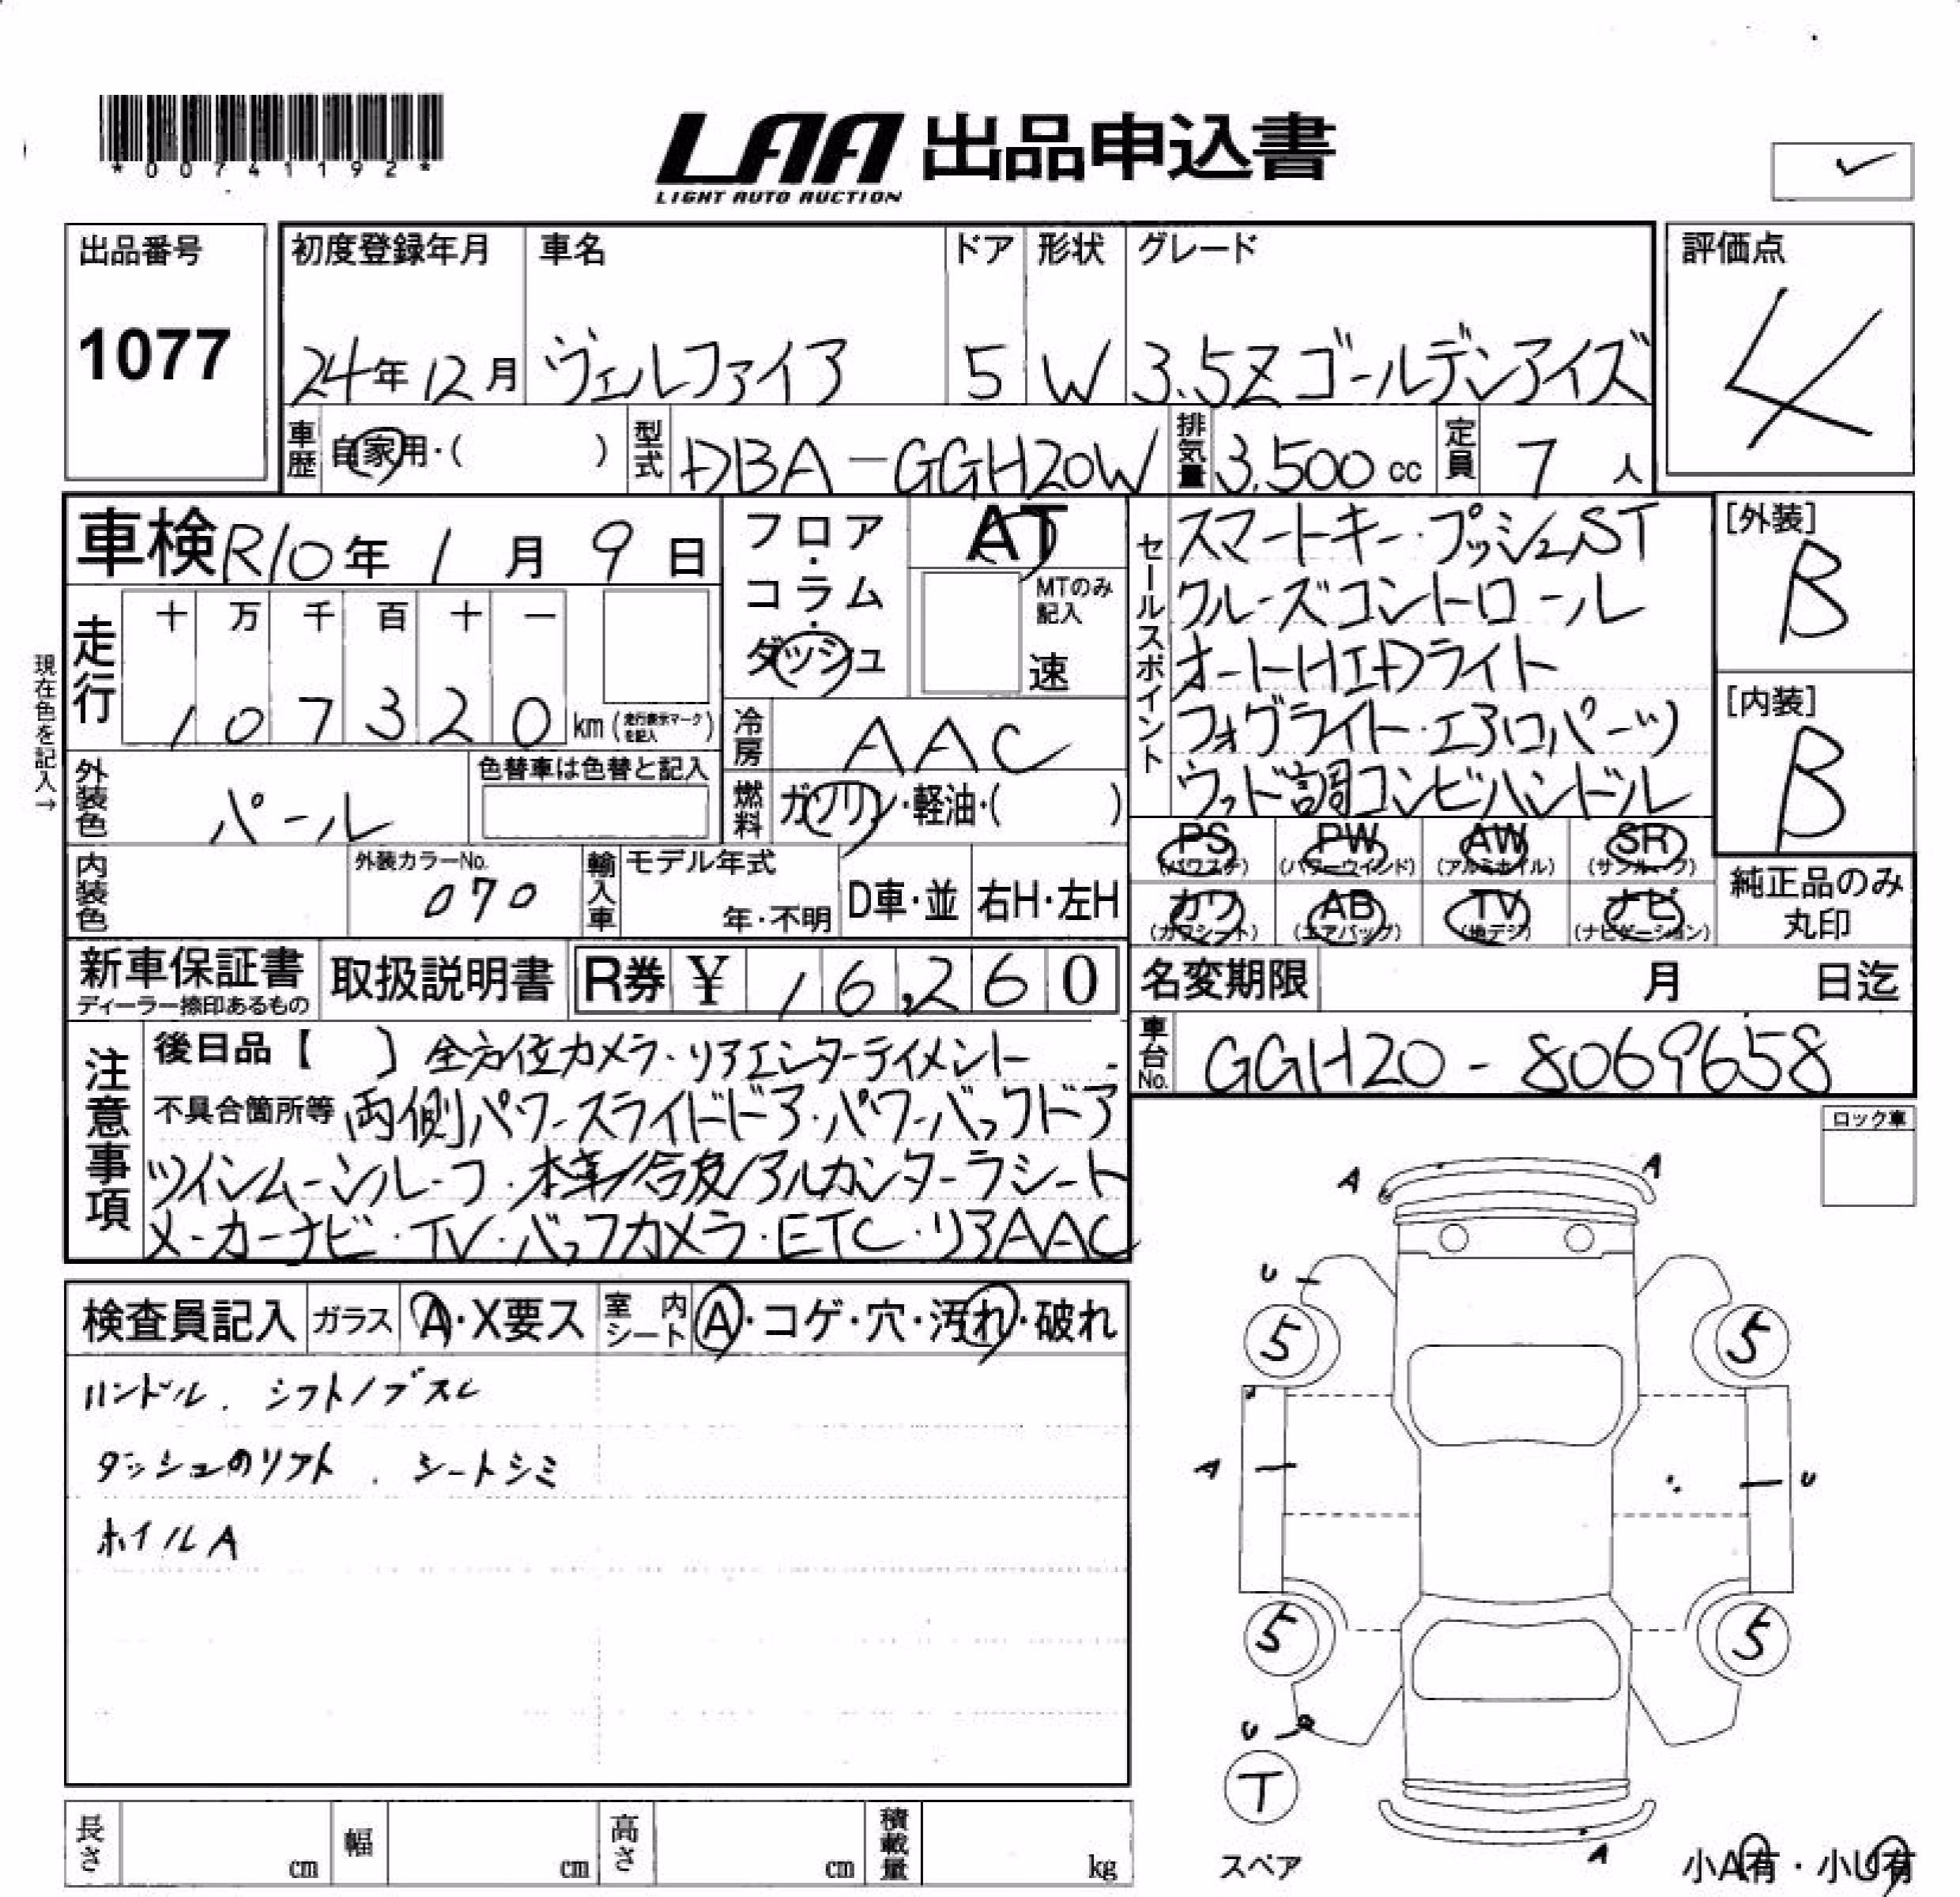 *00741192*
LAA 出品申込書
LIGHT AUTO AUCTION
✓
出品番号
1077
初度登録年月 車名 ドア 形状 グレード
24年12月 ヴェルファイア 5 W 3.5Z ゴールデンアイズ
評価点
4
車歴 自家用・( ) 型式 DBA-GGH20W 排気量 3,500 cc 定員 7 人
車検 R10年 1月 9日
フロア・コラム・ダッシュ
AT
MTのみ記入
速
セールスポイント
スマートキー・プッシュST
クルーズコントロール
オートHIDライト
フォグライト・エアロパーツ
ウッド調コンビハンドル
[外装]
B
[内装]
B
現在色を記入→
走行 十 万 千 百 十 一
107320 km (走行表示マークを記入)
冷房 AAC
燃料 ガソリン・軽油・( )
外装色 パール
色替車は色替と記入
PS (パワステ) PW (パワーウインド) AW (アルミホイル) SR (サンルーフ)
カワ (カワシート) AB (エアバッグ) TV (地デジ) ナビ (ナビゲーション)
純正品のみ丸印
内装色 外装カラーNo. 070
輸入車 モデル年式 年・不明 D車・並 右H・左H
新車保証書 ディーラー捺印あるもの 取扱説明書 R券 ¥ 16,260
名変期限 月 日迄
車台No. GGH20-8069658
注意事項
後日品【 】全方位カメラ・リアエンターテイメント
不具合箇所等 両側パワースライドドア・パワーバックドア
ツインムーンルーフ・本革/合皮/アルカンターラシート
メーカーナビ・TV・バックカメラ・ETC・リアAAC
ロック車
検査員記入 ガラス A・X要ス 室内シート A・コゲ・穴・汚れ・破れ
ハンドル、シフトノブスレ
ダッシュのリフト、シートシミ
ホイルA
A A
U
5 5
A U
5 5
U
T
スペア
A
小A有・小U有
長さ cm 幅 cm 高さ cm 積載量 kg